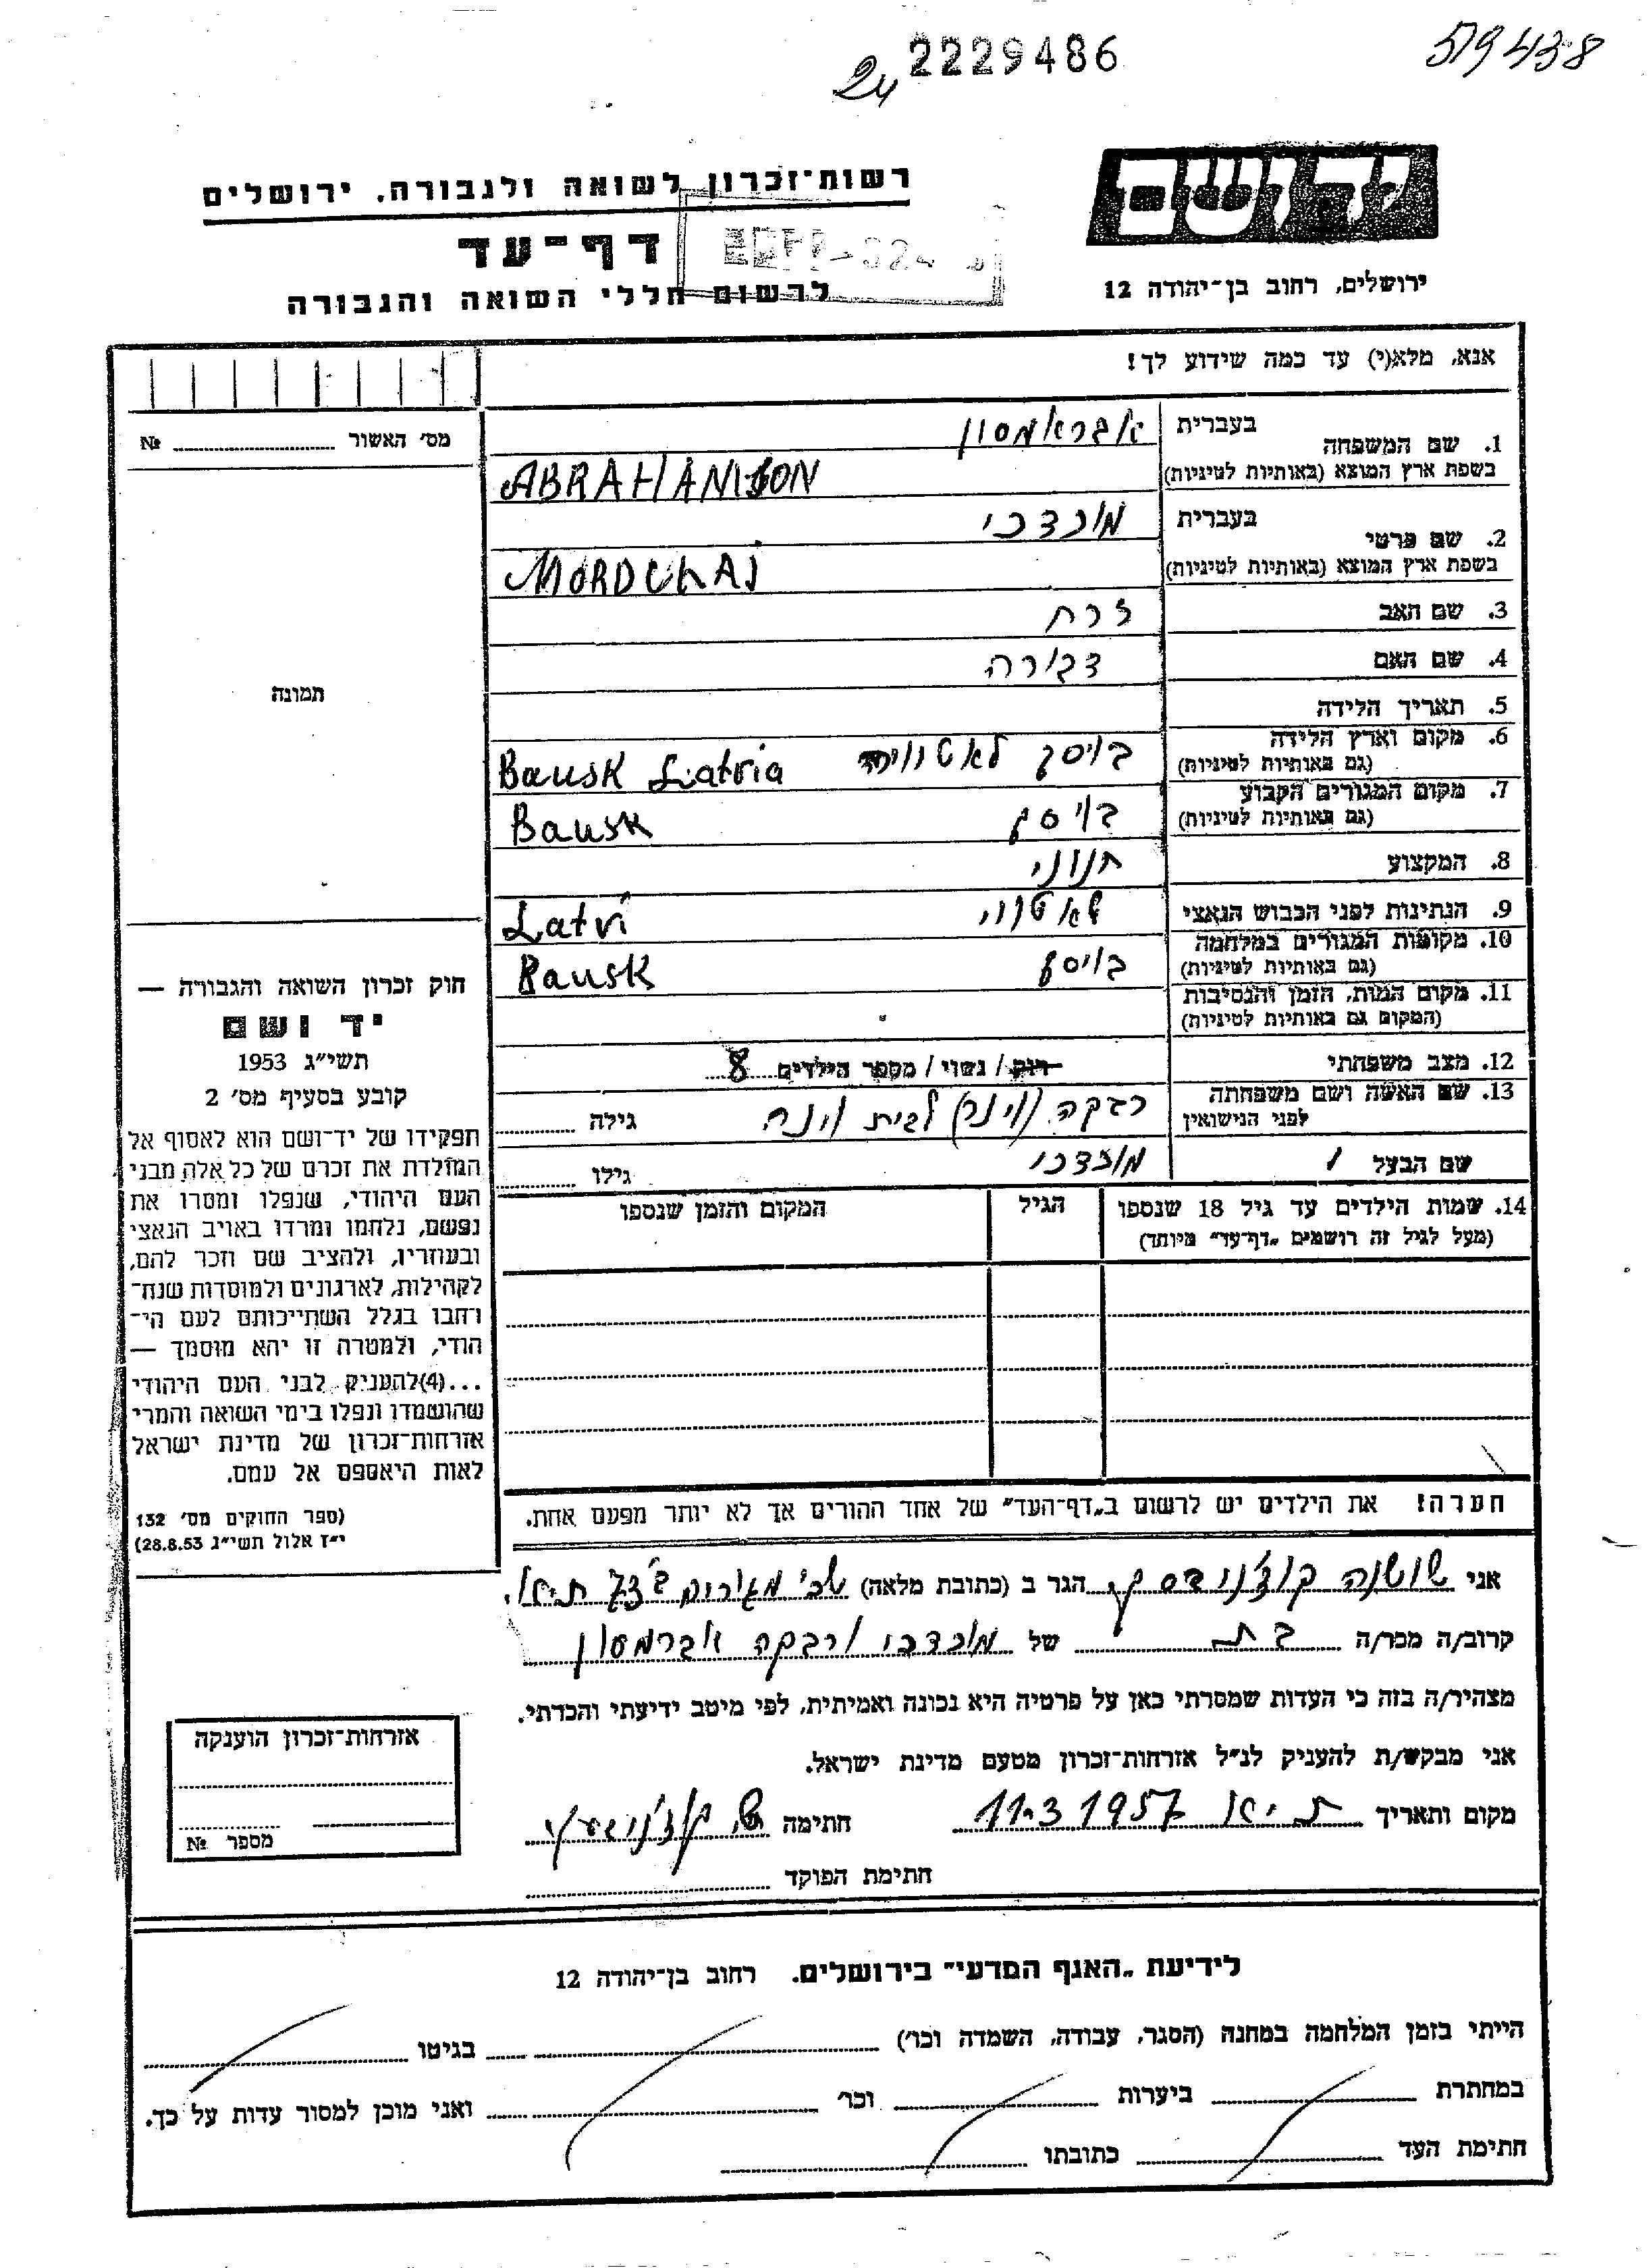 2229486
24
59438
יד ושם
ירושלים, רחוב בן־יהודה 12
רשות־זכרון לשואה ולגבורה, ירושלים
דף־עד
לרשום חללי השואה והגבורה
אנא, מלא(י) עד כמה שידוע לך!
1. שם המשפחה בעברית אבראמסון
בשפת ארץ המוצא (באותיות לטיניות) ABRAHAMSON
2. שם פרטי בעברית מורדכי
בשפת ארץ המוצא (באותיות לטיניות) MORDUHAJ
3. שם האב זרח
4. שם האם דבורה
5. תאריך הלידה
6. מקום וארץ הלידה בויסק Bausk Latvia
(גם באותיות לטיניות)
7. מקום המגורים הקבוע בויסק Bausk
(גם באותיות לטיניות)
8. המקצוע חנוני
9. הנתינות לפני הכבוש הנאצי Latvi
10. מקומות המגורים במלחמה בויסק Bausk
(גם באותיות לטיניות)
11. מקום המות, הזמן והנסיבות
(המקום גם באותיות לטיניות)
12. מצב משפחתי רוק / נשוי / מספר הילדים 8
13. שם האשה ושם משפחתה לפני הנישואין רבקה (וינר) לבית וינר גילה
שם הבעל מורדכי גילו
14. שמות הילדים עד גיל 18 שנספו הגיל המקום והזמן שנספו
(מעל לגיל זה רושמים „דף־עד" מיוחד)
הערה! את הילדים יש לרשום ב„דף־העד" של אחד ההורים אך לא יותר מפעם אחת.
מס' האשור №
תמונה
חוק זכרון השואה והגבורה —
יד ושם
תשי"ג 1953
קובע בסעיף מס' 2
תפקידו של יד־ושם הוא לאסוף אל
המולדת את זכרם של כל אלה מבני
העם היהודי, שנפלו ומסרו את
נפשם, נלחמו ומרדו באויב הנאצי
ובעוזריו, ולהציב שם וזכר להם,
לקהילות, לארגונים ולמוסדות שנח־
רחבו בגלל השתייכותם לעם הי־
הודי, ולמטרה זו יהא מוסמך —
...(4)להעניק לבני העם היהודי
שהושמדו ונפלו בימי השואה והמרי
אזרחות־זכרון של מדינת ישראל
לאות היאספם אל עמם.
(ספר החוקים מס' 132
י"ז אלול תשי"ג 28.8.53)
אני שושנה הגר ב (כתובת מלאה)
קרוב/ה מכר/ה בת של מורדכי ורבקה אברמסון
מצהיר/ה בזה כי העדות שמסרתי כאן על פרטיה היא נכונה ואמיתית, לפי מיטב ידיעתי והכרתי.
אני מבקש/ת להעניק לנ"ל אזרחות־זכרון מטעם מדינת ישראל.
מקום ותאריך ת"א 11.3 1957 חתימה
חתימת הפוקד
אזרחות־זכרון הוענקה
מספר №
לידיעת „האגף המדעי" בירושלים, רחוב בן־יהודה 12
הייתי בזמן המלחמה במחנה (הסגר, עבודה, השמדה וכו') בגיטו
במחתרת ביערות וכו' ואני מוכן למסור עדות על כך.
חתימת העד כתובתו